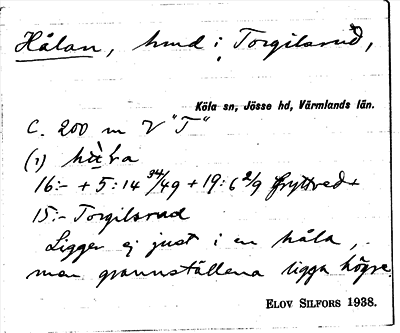 Hålan, hmd i Torgilsrud,
Köla sn, Jösse hd, Värmlands län.
C. 200 m V "T"
(1) hå̀la
16:- + 5:14 34/49 + 19:6 2/9 Fryttved +
15:- Torgilsrud
Ligger ej just i en håla,
men grannställena ligga högre.
ELOV SILFORS 1938.